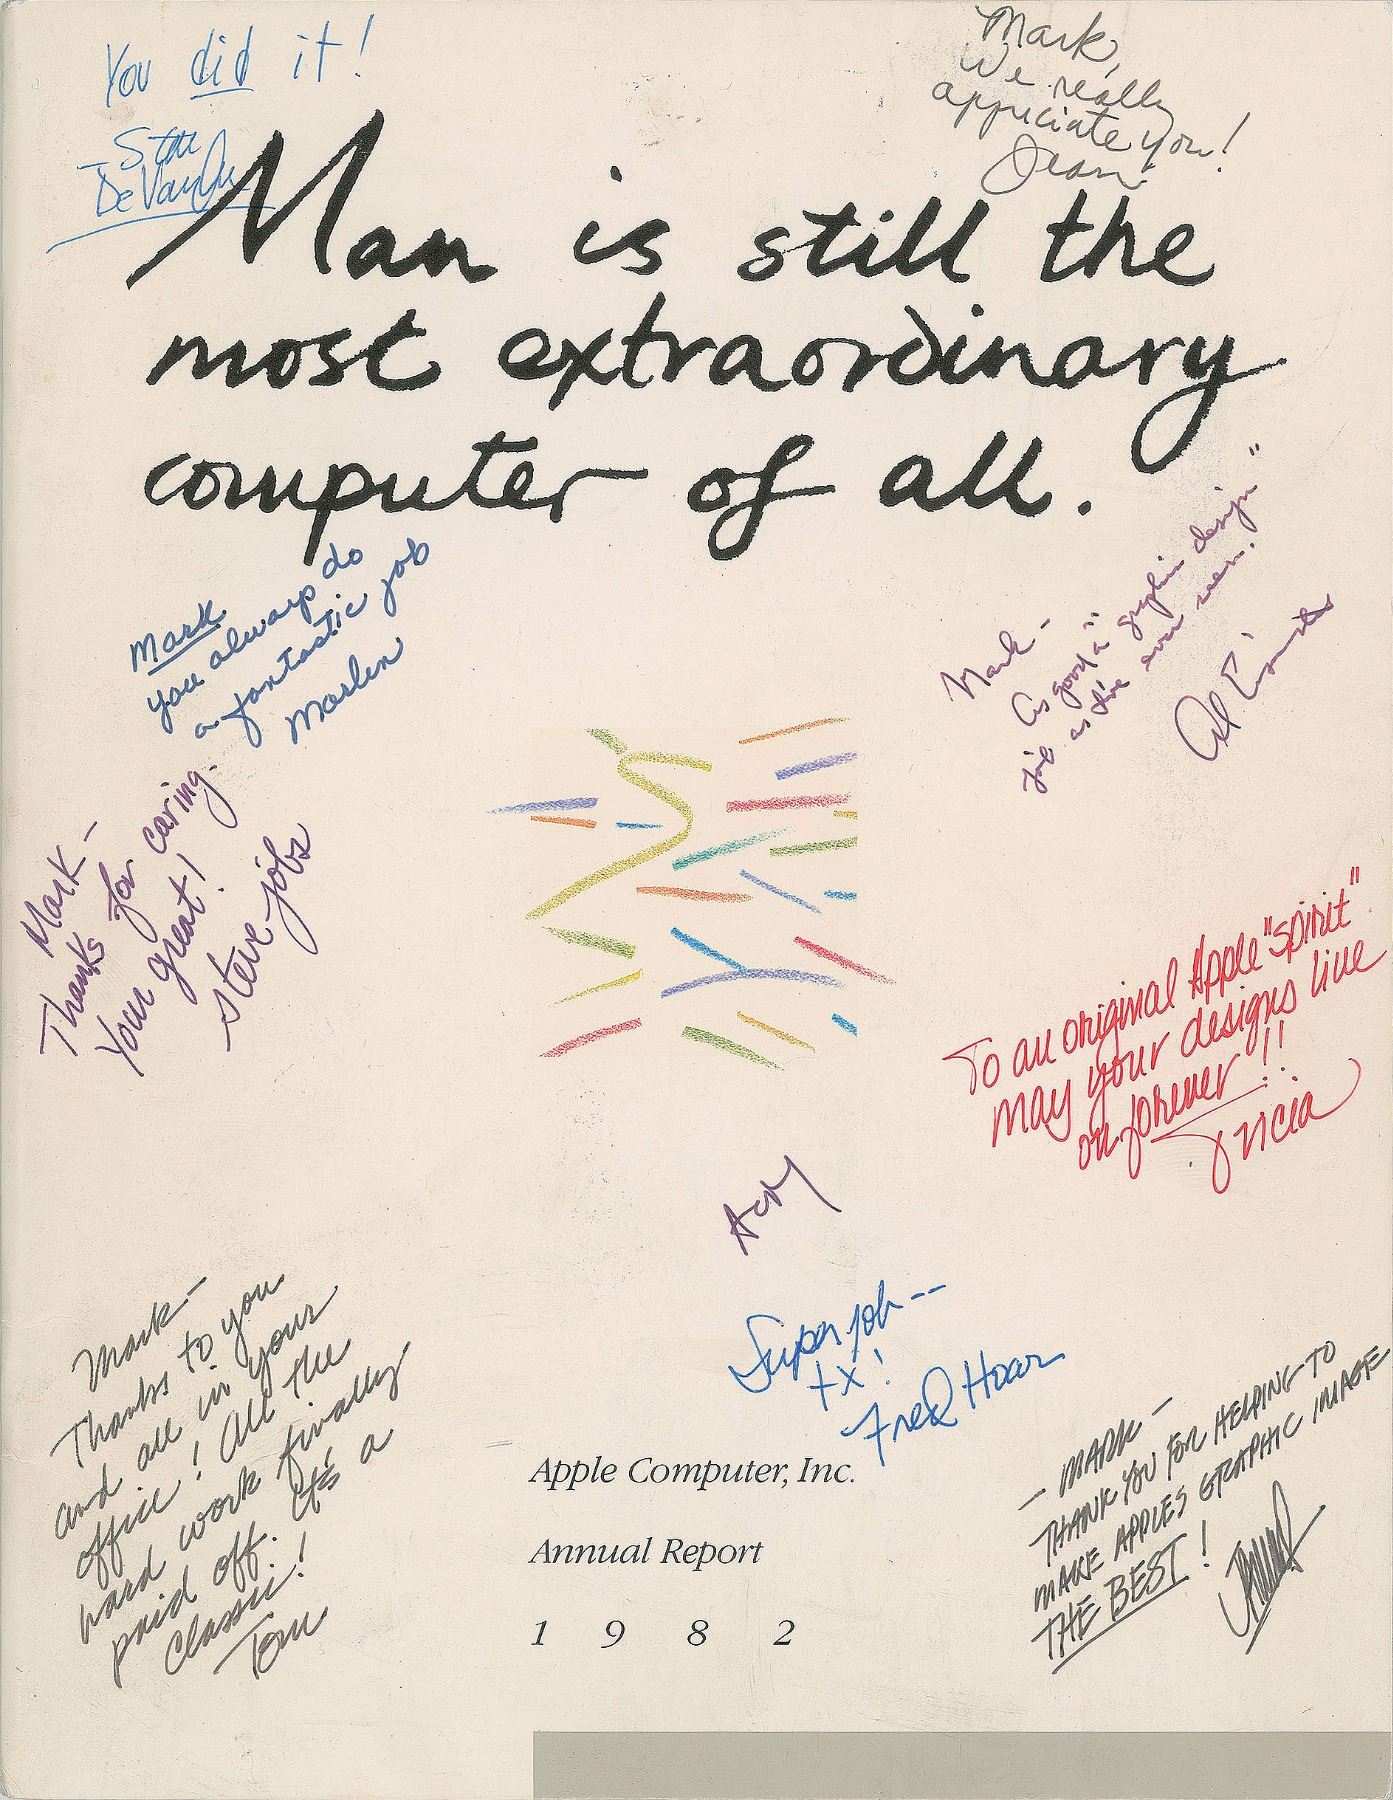 You did it!
Mark,
We really
appriciate you!
Jean
Man is still the
most extraordinary
computer of all.
Mark
you always do
a fantastic job
Marlen
Mark -
As good a graphic design"
job as I've ever seen."
Mark -
Thanks for caring.
Your great!
steve jobs
To an original Apple "spirit"
may your designs live
on forever!!
Tricia
Super job --
tx!
Fred Hoar
Mark -
Thanks to you
and all in your
office! All the
hard work finally
paid off. It's a
Classic!
Tom
- MARK -
THANK YOU FOR HELPING TO
MAKE APPLES GRAPHIC IMAGE
THE BEST!
Apple Computer, Inc.
Annual Report
1 9 8 2